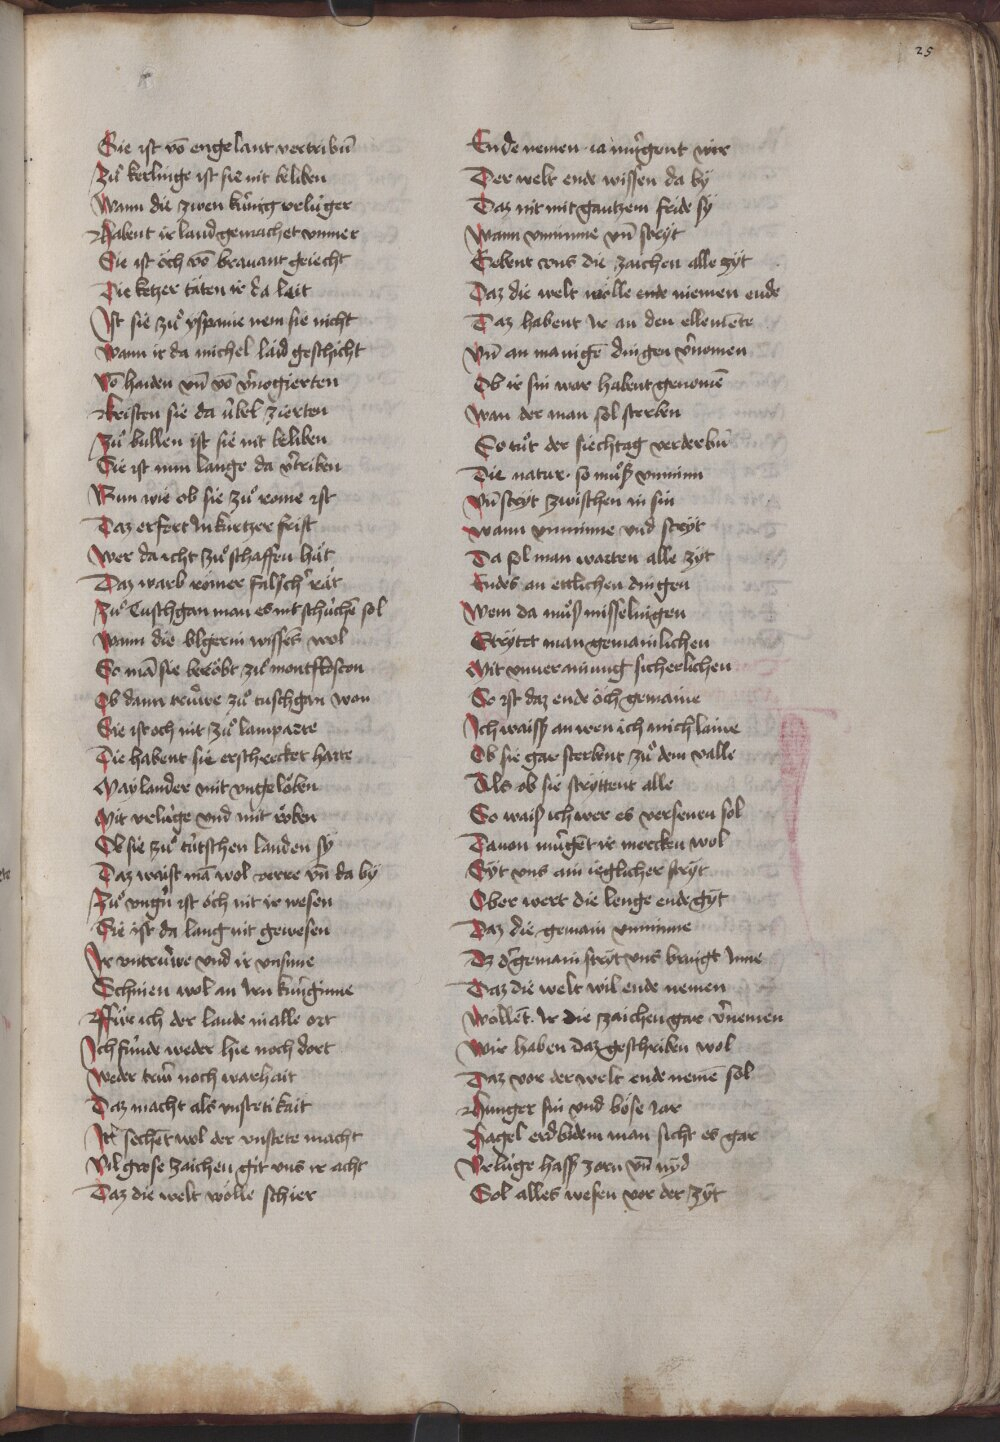 25
Sie ist võ engelant vertribñ
Zuͦ kerlinge ist sie nit beliben
Wann die zwen kúnig vrlúger
Habent ir land gemachet vnmer
Sie ist och võ brauant geiecht
Die ketzer täten ir da lait
Ist sie zuͦ yspanie nem sie nicht
Wann ir da michel laid geschicht
Võ haiden vñ võ v̾nogierten
Kristen sie da úbel zierten
Zuͦ bullen ist sie nit beliben
Sie ist nun lange da v̾triben
Nun wie ob sie zuͦ rome ist
Daz erfert In kurtzer frist
Wer da icht zuͦ schaffen hät
Daz warb römer falsch rät
Zuͦ Tuschgan man es nit schúchẽ sol
Wann die bilgerin wissẽs wol
So mã sie berobt zuͦ montfloscon
Ob dann trúwe zuͦ tuschgan won
Sie ist och nit zuͦ lamparte
Die habent sie erschrecket harte
Maylander mit vngelöben
Mit vrlúge und mit röben
Ob sie zuͦ tútschen landen sy
Daz waist mã wol verre vñ da by
Zuͦ vngñ ist och nit ir wesen
Sie ist da lang nit gewesen
Ir vntrúwe vnd ir vnsinne
Schinen wol an Irn kúnginne
Ffúr ich der lande in alle ort
Ich fúnde weder hie noch dort
Weder trúw noch warhait
Daz macht als vnstetikait
Irͬ sechẽt wol der vnstete macht
Vil grose zaichen git vns ir acht
Daz die welt wölle schier
Ende nemen . ia múgent wir
Der welt ende wissen da by
Daz nit mit gantzem fride sy
Wann vnminne vñ stryt
Gebent vns die zaichen alle zyt
Daz die welt wölle ende niemen ende
Daz habent Ir an den ellemẽte
Vñ an manigẽ dingen v̾nomen
Ob ir sin war habent genomẽ
Wan der man sol sterben
So tuͦt der siechtag verderbñ
Die natur . so muͦß vnminn
Vñ stryt zwischen in sin
Wann vnminne vnd stryt
Da sol man warten alle zyt
Endes an ettlichen dingen
Wem da muͦß misselingen
Strytet man gemainlichen
Mit vnuerainung sicherlichen
So ist daz ende och gemaine
Ich waiß an wen ich mich laine
Ob sie gar sterbent zuͦ dem valle
Als ob sie stryttent alle
So waiß ich wer es versenen sol
Dauon múgẽt ir mercken wol
Gyt vns ain ieglicher stryt
Ober wert die lenge ende gyt
Daz die gemain vnminne
Dz d̾ gemain stryt vns bringt Inne
Daz die welt wil ende nemen
Wöllẽt Ir die zaichen gar v̾nemen
Wir haben daz geschriben wol
Daz vor der welt ende nemẽ sol
Hunger sin vnd böse iar
Hagel erdbidem man sicht es gar
Vrlúge haß zorn vñ nyd
Sol alles wesen vor der zyt